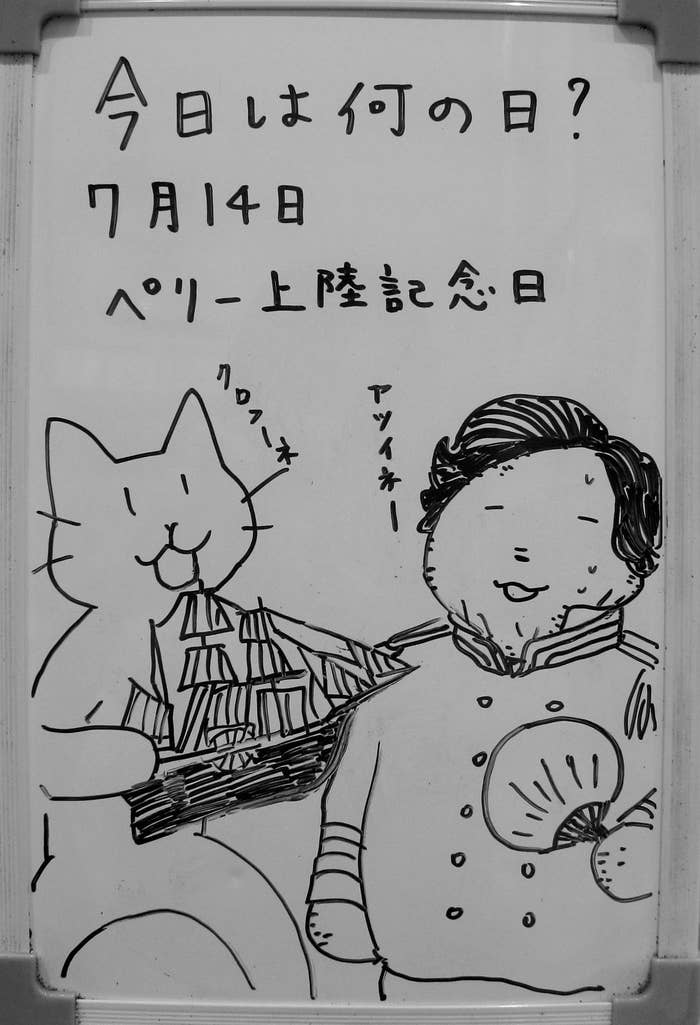 今日は何の日?
7月14日
ペリー上陸記念日
クロフーネ
アツイネー